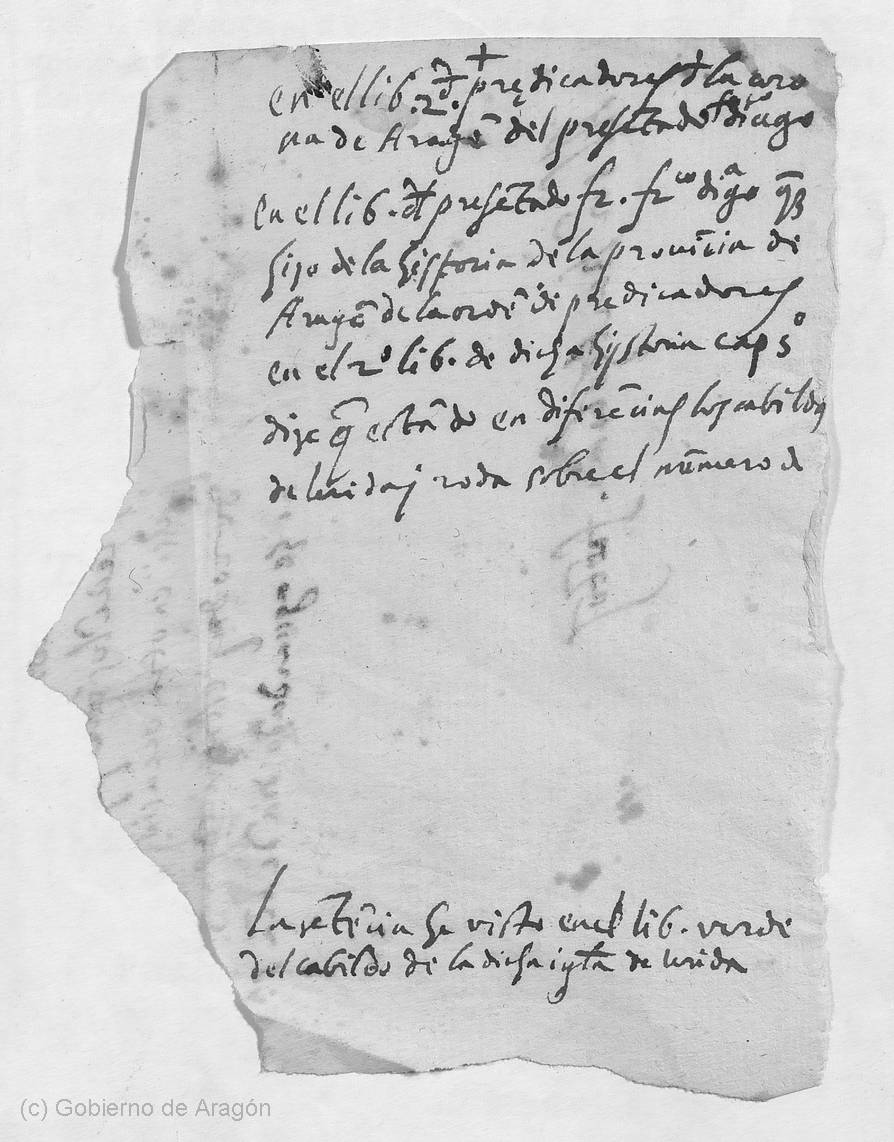 +
en el lib. 2º. đ predicadores đ la coro
na de Aragõ del presẽtado fr. frco diago
en el lib. đl presẽtado fr. frco diago q̃
hizo de la historia de la prouĩcia de
Aragõ de la ordẽ de predicadores
en el 2º lib. de dicha hystoria cap sº
dize q̃ estãdo en diferẽcias los cabildos
de lerida y roda sobre el nũmero d
La sẽtẽcia ha visto en el lib. verde
del cabildo de la dicha iglã de lerida
(c) Gobierno de Aragón